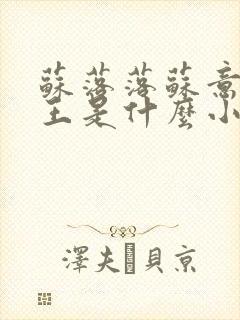 蘇落落蘇意
主是什麼小
澤夫 貝京